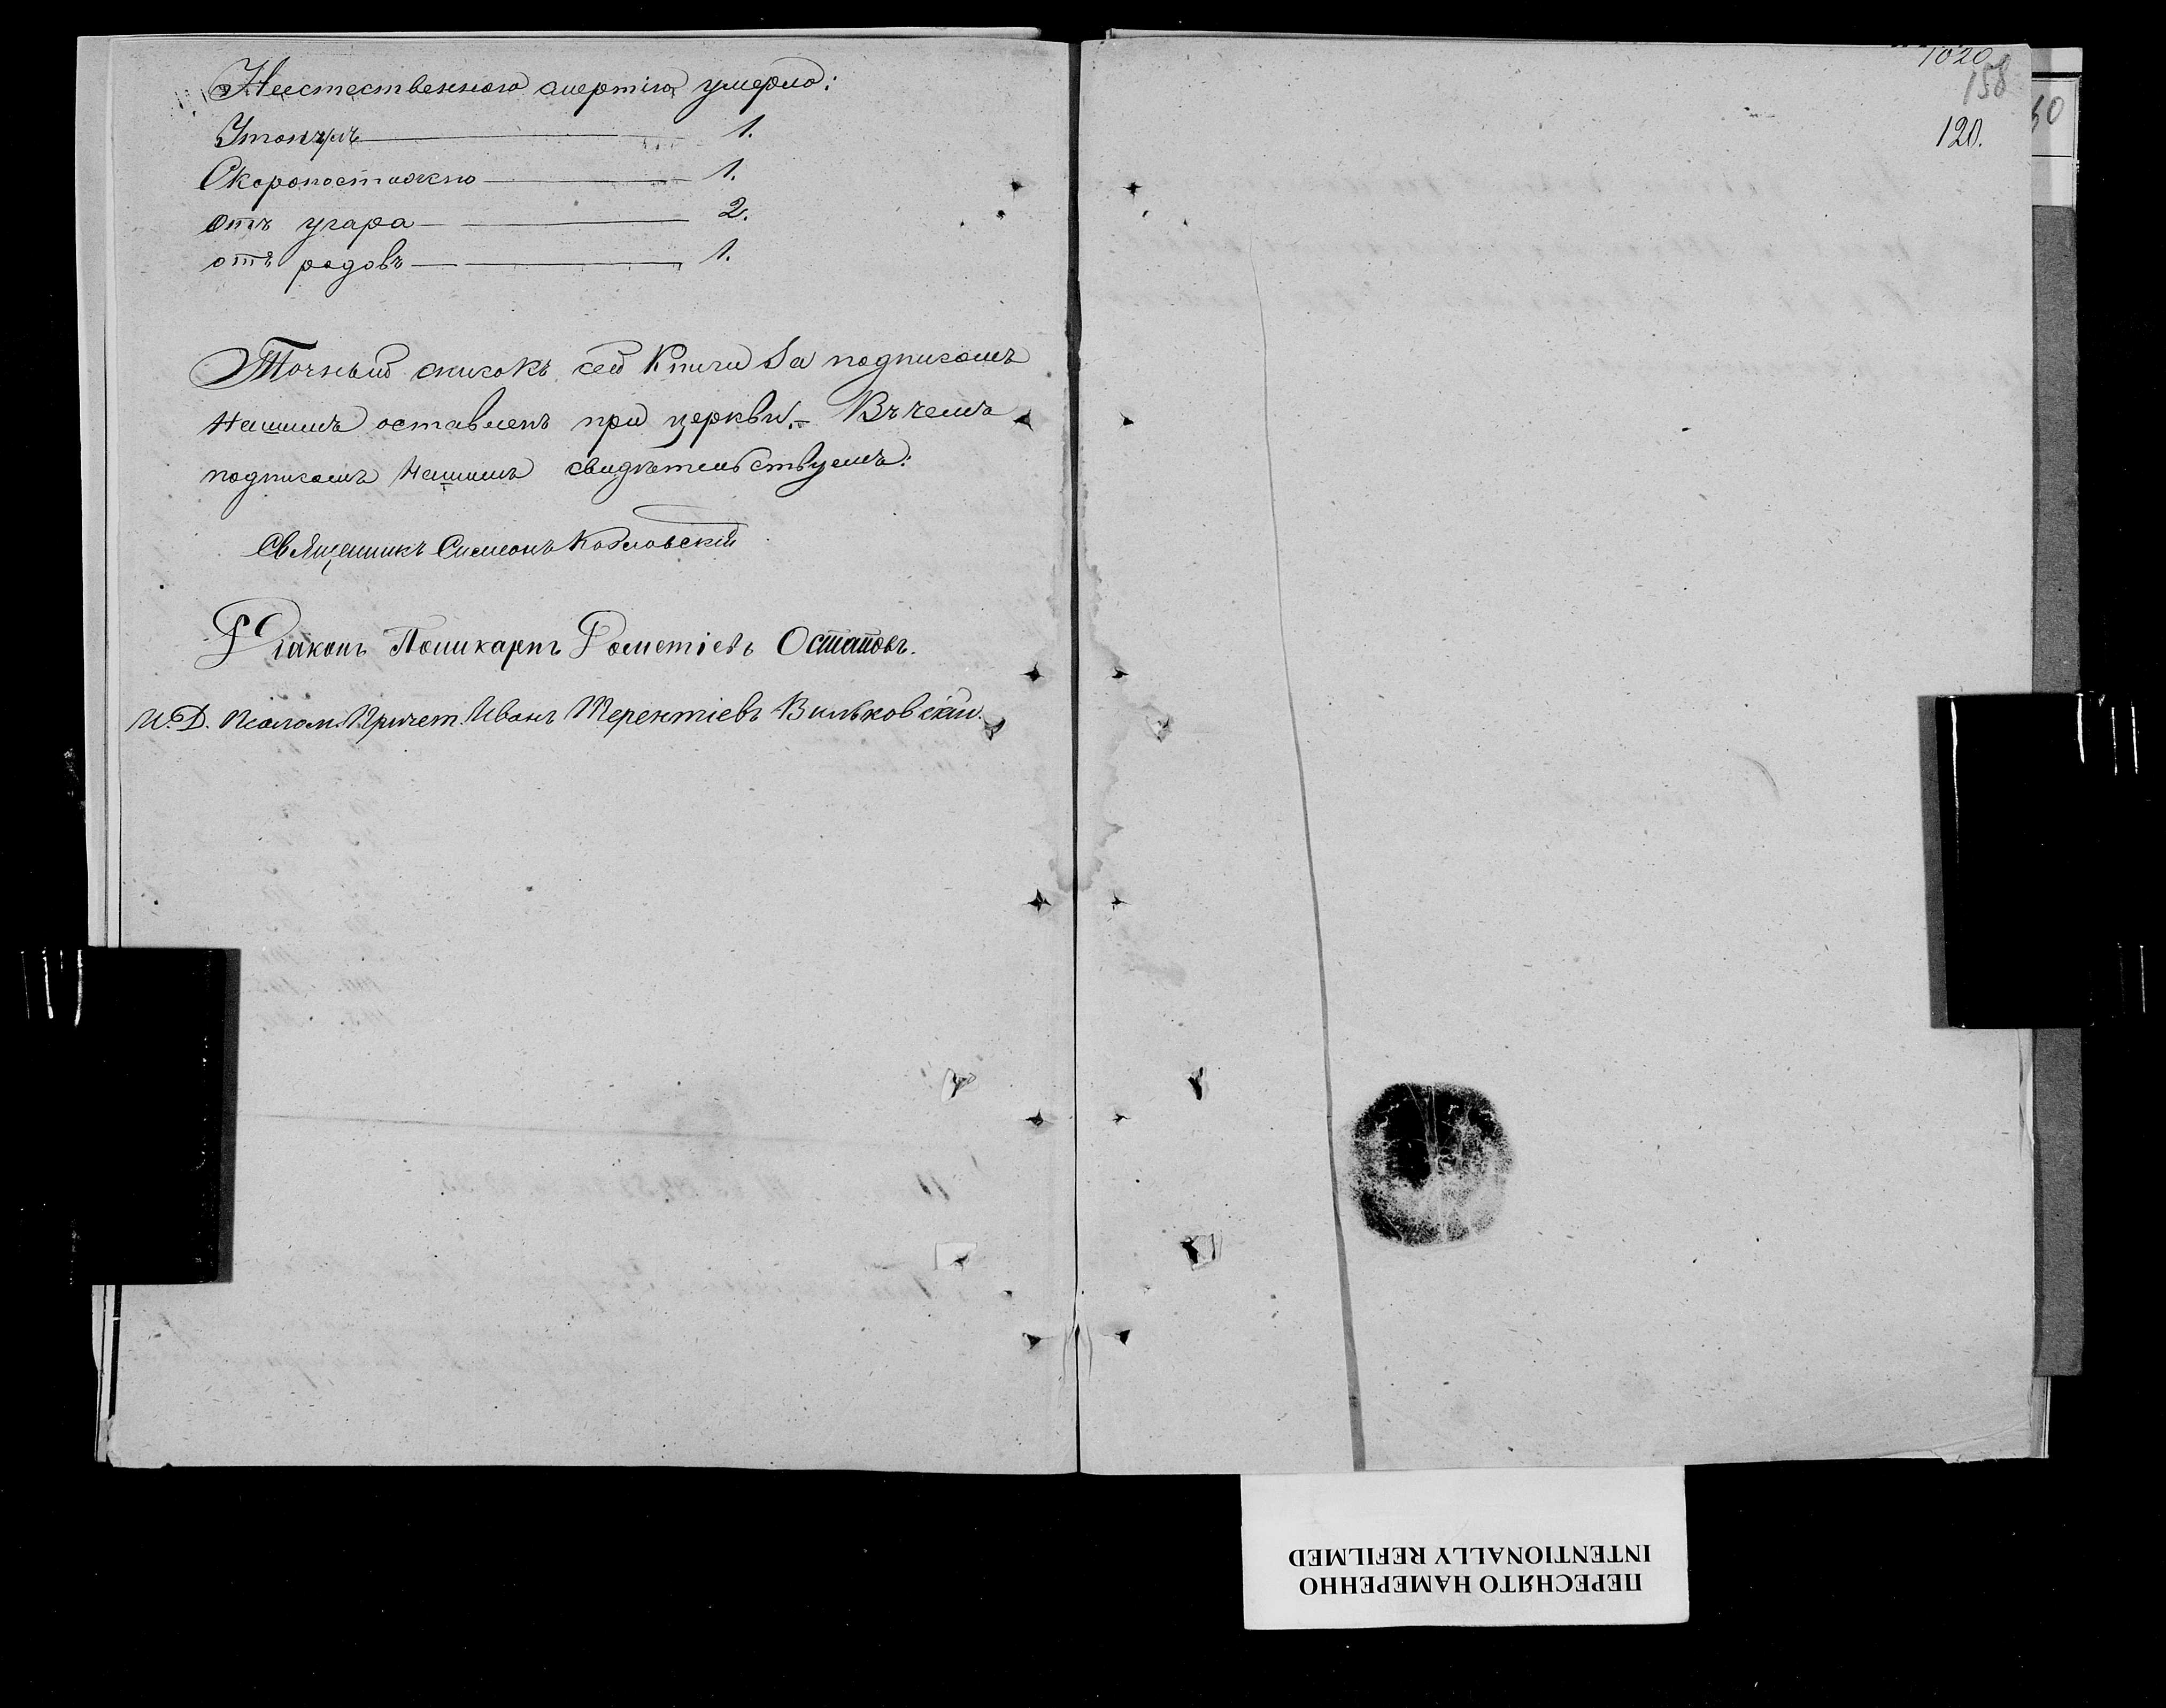 Неестественною смертію умерло:
Утонулъ 1.
Скоропостижно 1.
отъ угара 2.
отъ родовъ 1.
Точный списокъ сей Книги За подписомъ
Нашимъ оставленъ при церкви. – Въ чемъ
подписомъ Нашимъ свидѣтельствуемъ:
Священникъ Симеонъ Козловскій
Діаконъ Поликарпъ Остаповъ.
И. Д. Псалом. Причет. Иванъ Терентіевъ Вильковскій.
1020
158
120.
60
ПЕРЕСНЯТО НАМЕРЕННО
INTENTIONALLY REFILMED